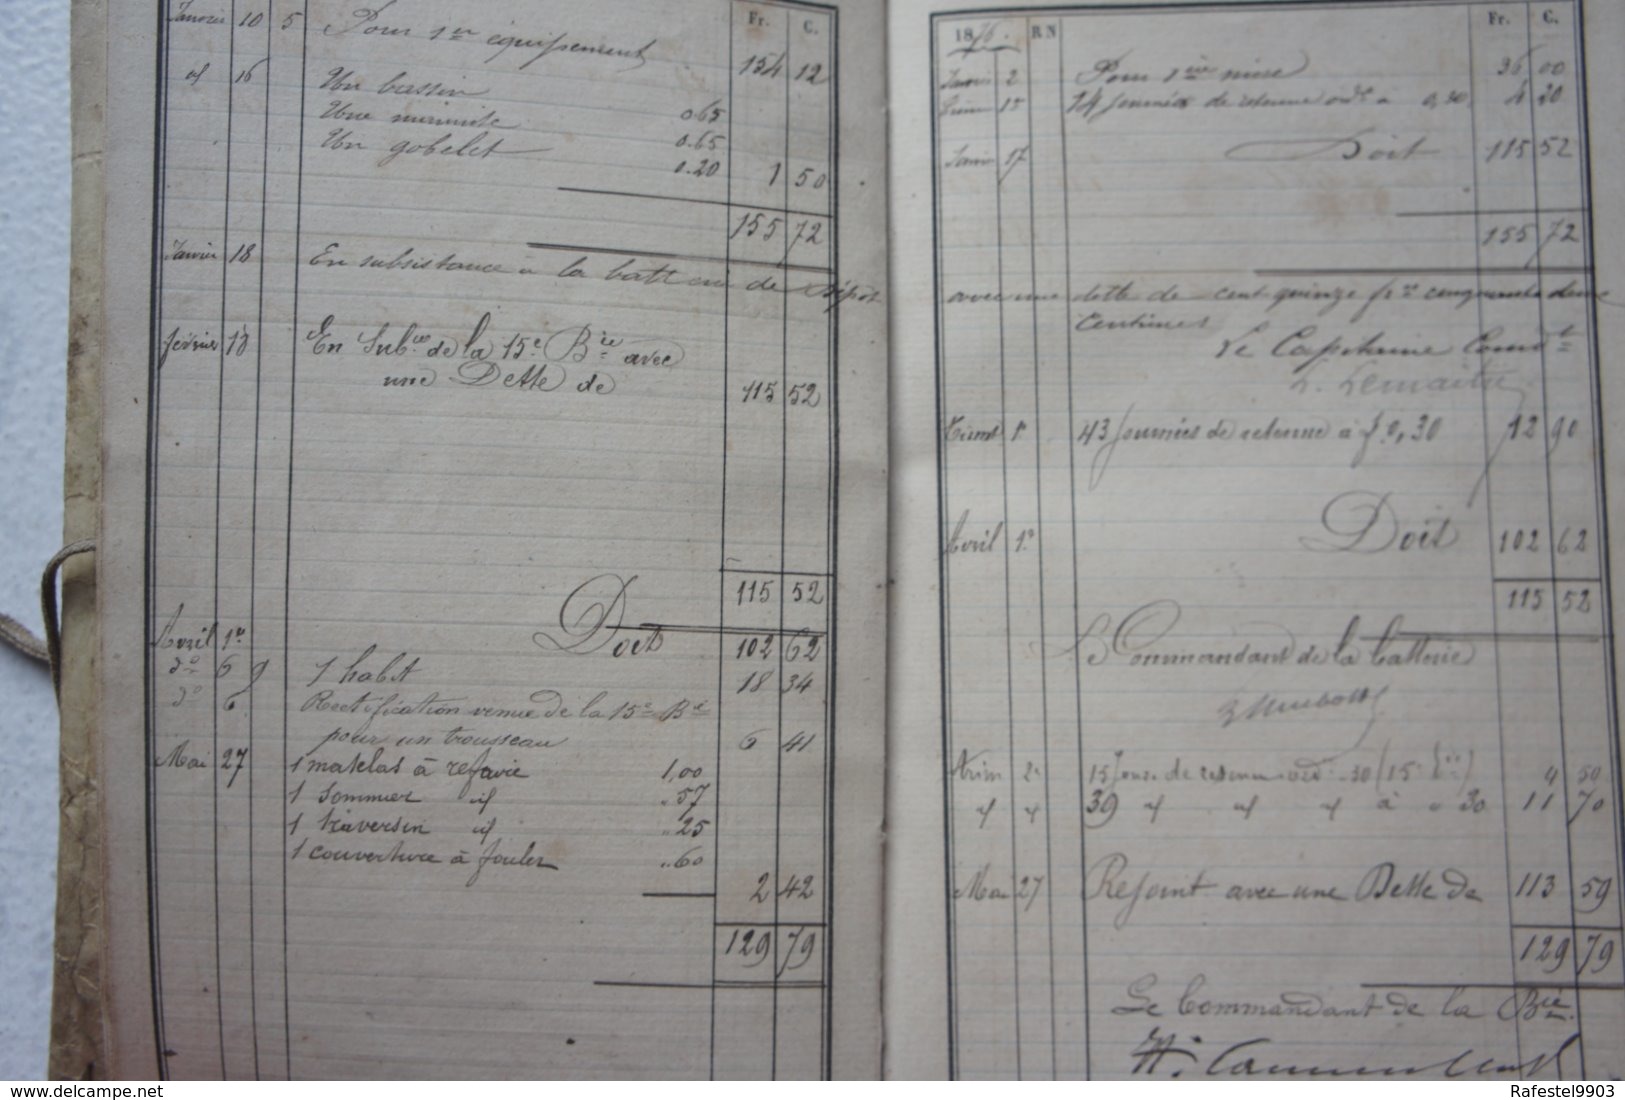 Fr. C.
Janvier 10 5 Pour 1er équipement 154 12
id 16 Un bassin 0.65
Une 0.65
Un gobelet 0.20 1 50
155 72
Janvier 18 En subsistance à la batterie de dépôt
février 18 En Subce de la 15e Bie avec
une Dette de 115 52
115 52
Avril 1er Doit 102 62
do 6 9 1 habit 18 34
do 6 Rectification venue de la 15e Bie
pour un trousseau 6 41
Mai 27 1 matelas à refaire 1,00
1 sommier id "57
1 traversin id "25
1 couverture à fouler "60
2 42
129 79
1876. RN Fr. C.
Janvier 2 Pour 1ère mise 36 00
15 14 journées de retenue ordre à 0,30 4 20
Janvier 17 Doit 115 52
155 72
avec une dette de cent quinze frs cinquante deux
centimes
Le Capitaine Comdt
L. Lemaitre
1r 43 journées de retenue à f. 0,30 12 90
Avril 1r Doit 102 62
115 52
Le Commandant de la batterie
Trim 2e 15 de retenue ord. "30 (15e Bie) 4 50
id id 39 id id id à " 30 11 70
Mai 27 Rejoint avec une Dette de 113 59
129 79
Le Commandant de la Bie.
delcampe.net
Rafestel9903